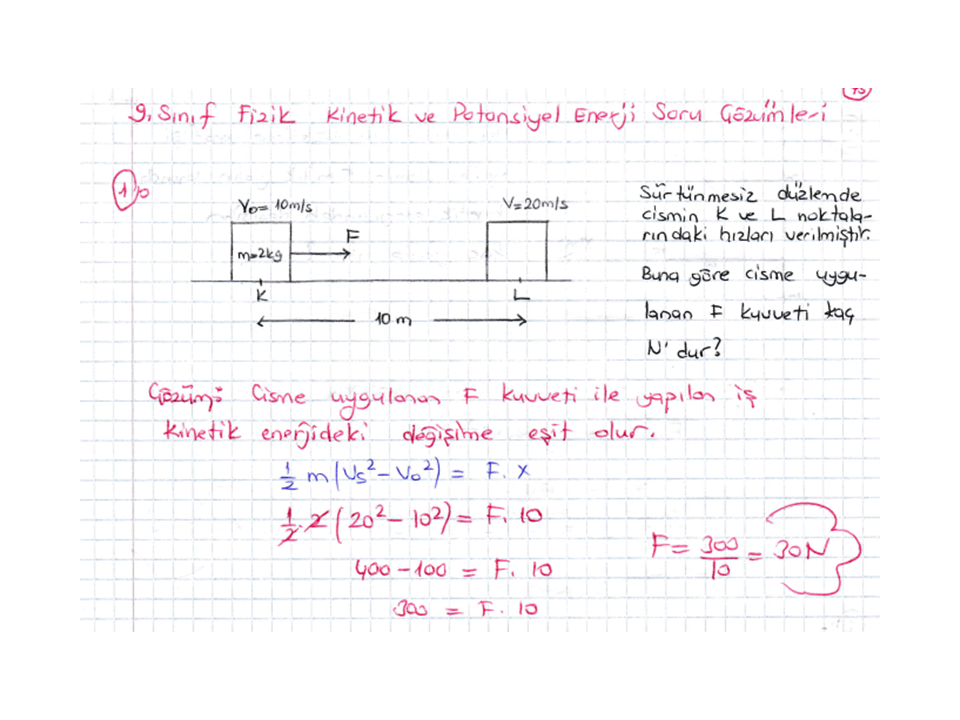 75
9. Sınıf Fizik Kinetik ve Potansiyel Enerji Soru Çözümleri
1)
V₀= 10m/s
V=20m/s
F
m=2kg
K
L
10 m
Sürtünmesiz düzlemde
cismin K ve L noktala-
rındaki hızları verilmiştir.
Buna göre cisme uygu-
lanan F kuvveti kaç
N' dur?
Çözüm: Cisme uygulanan F kuvveti ile yapılan iş
kinetik enerjideki değişime eşit olur.
1/2 m(Vs² - V₀²) = F. x
1/2 . 2 (20² - 10²) = F. 10
400 - 100 = F. 10
300 = F. 10
F = 300/10 = 30N